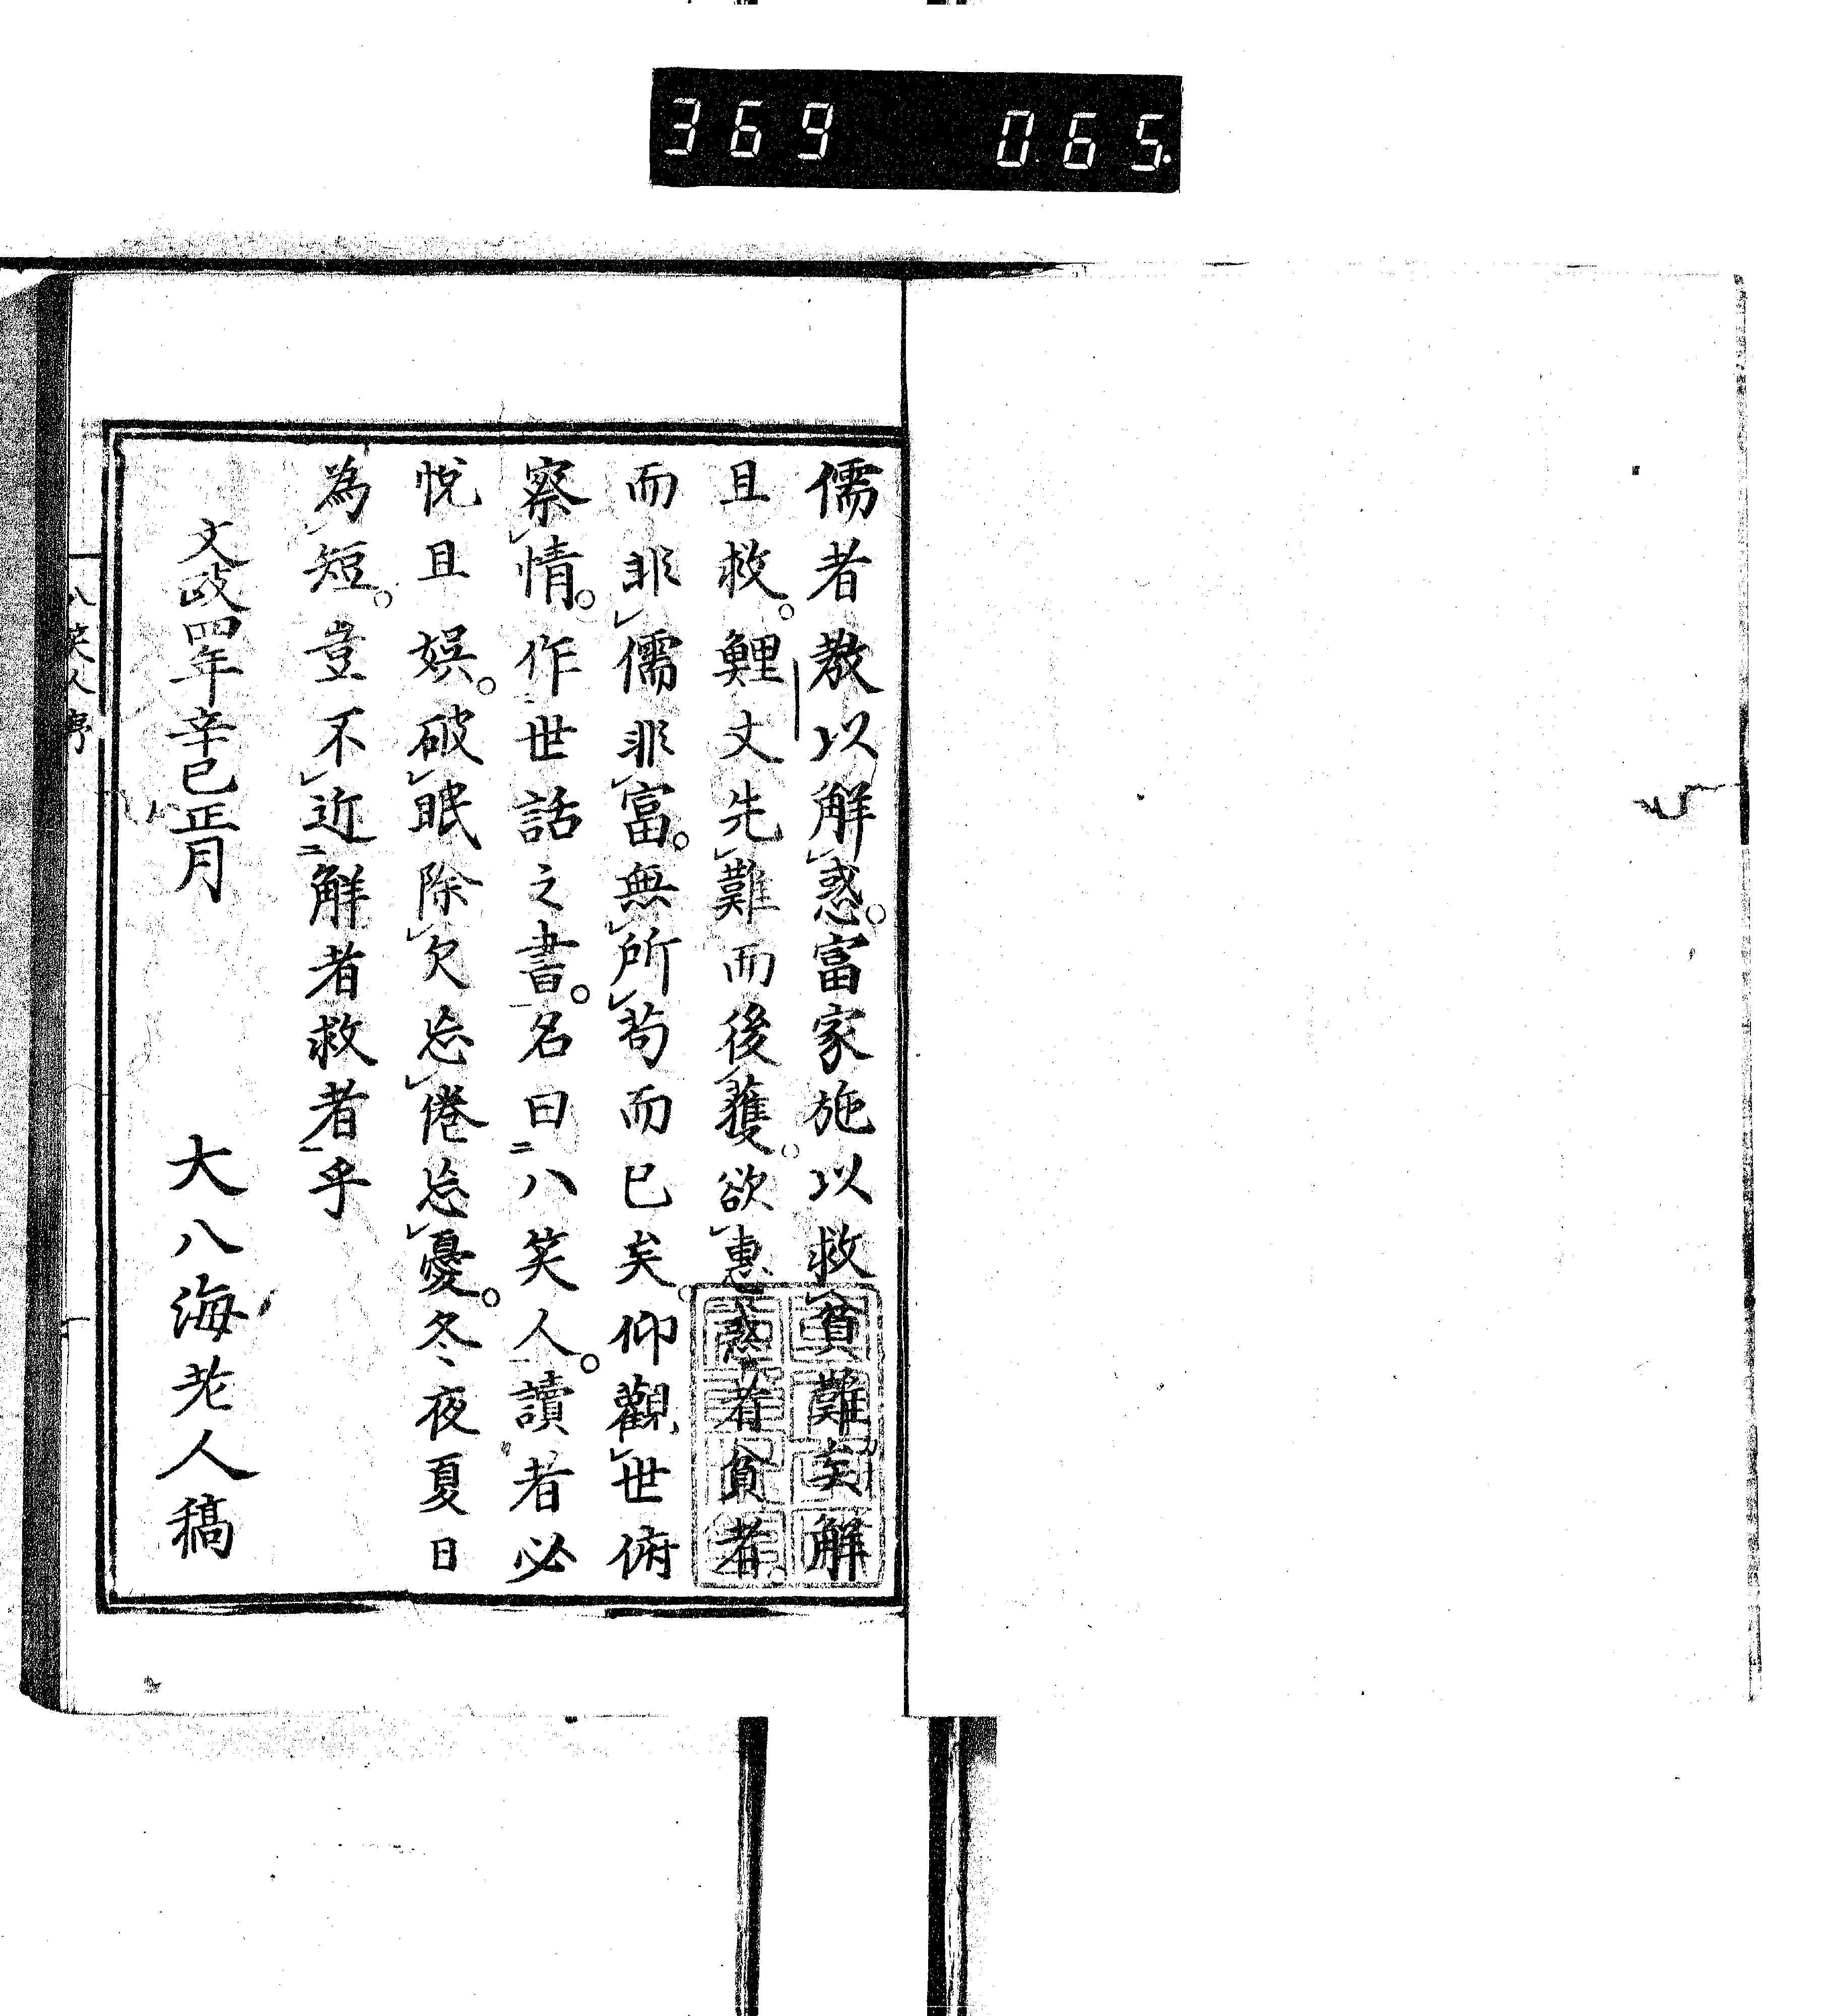 369 065
儒者教以解惑。富家施以救貧難矣解
且救。鯉丈先難而後獲。欲惠惑者貧者。
而非儒非富。無所苟而已矣。仰觀世俯
察情。作世話之書。名曰八笑人。讀者必
悅且娯。破眠除欠忘倦忘憂。冬夜夏日
為短。豈不近解者救者乎
文政四年辛巳正月
大八海老人稿
八笑人序